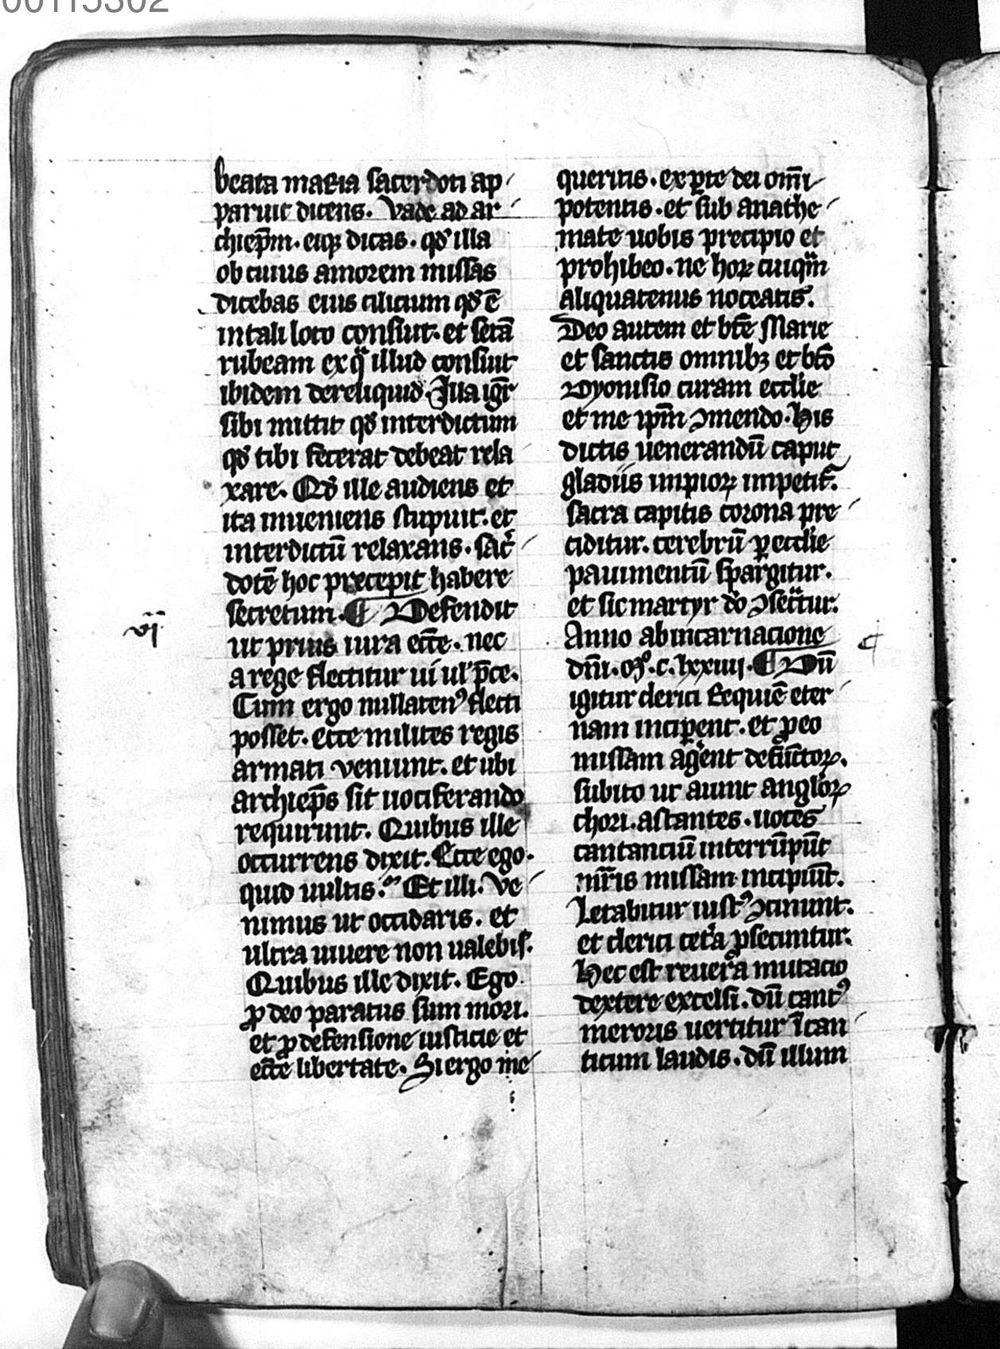 00115302
beata maria sacerdoti ap
paruit dicens. Vade ad ar
chiep̄m. eiꝗ dicas. qd̛ illa
ob cuius amorem missas
dicebas eius cilicium qd̛ ē
in tali loco consuit. et setā
rubeam ex q̄ illud consuit
ibidem dereliquid. Illa igr̄
sibi mittit qd̛ interdictum
qd̛ tibi fecerat debeat rela
xare. Qd̛ ille audiens et
ita inueniens stupuit. et
interdictū relaxans. sac̛
dotē hoc precepit habere
secretum. ¶ Defendit
vi
ut prius iura ecc̄e. nec
a rege flectitur ui ul' p̄ce.
Cum ergo nullaten⁹ flecti
posset. ecce milites regis
armati veniunt. et ubi
archiep̄s sit uociferando
requirunt. Quibus ille
occurrens dixit. Ecce ego.
quid uultis. Et illi. Ve
nimus ut occidaris. et
ultra uiuere non ualebis.
Quibus ille dixit. Ego
ꝓ deo paratus sum mori.
et ꝓ defensione iusticie et
ecc̄e libertate. Si ergo me
queritis. ex ꝑte dei om̄i
potentis. et sub anathe
mate uobis precipio et
prohibeo. ne hoꝝ cuiqͣm
aliquatenus noceatis.
Deo autem et bt̄e Marie
et sanctis omnibꝫ et bt̄o
Dyonisio curam eccl̄ie
et me ip̄m ꝯmendo. His
dictis uenerandū caput
gladiis impioꝝ impetit̛.
sacra capitis corona pre
ciditur. cerebrū ꝑ eccl̄ie
pauimentū spargitur.
et sic martyr dō ꝯsecr̄tur.
Anno ab incarnacione
dn̄i. mº. c. lxxiiii. ¶ Dū
igitur clerici Requiē eter
nam inciꝑent. et ꝓ eo
missam aḡent defūctoꝝ.
subito ut aiunt angloꝝ
chori. astantes. uoces
cantanciū interrūpūt
mr̄is missam incipiūt.
Letabitur iust⁹ ꝯcinunt.
et clerici cet̛a ꝓsecuntur.
Hec est reuera mutacio
dextere excelsi. dū cant⁹
meroris uertitur ī can
ticum laudis. dū illum